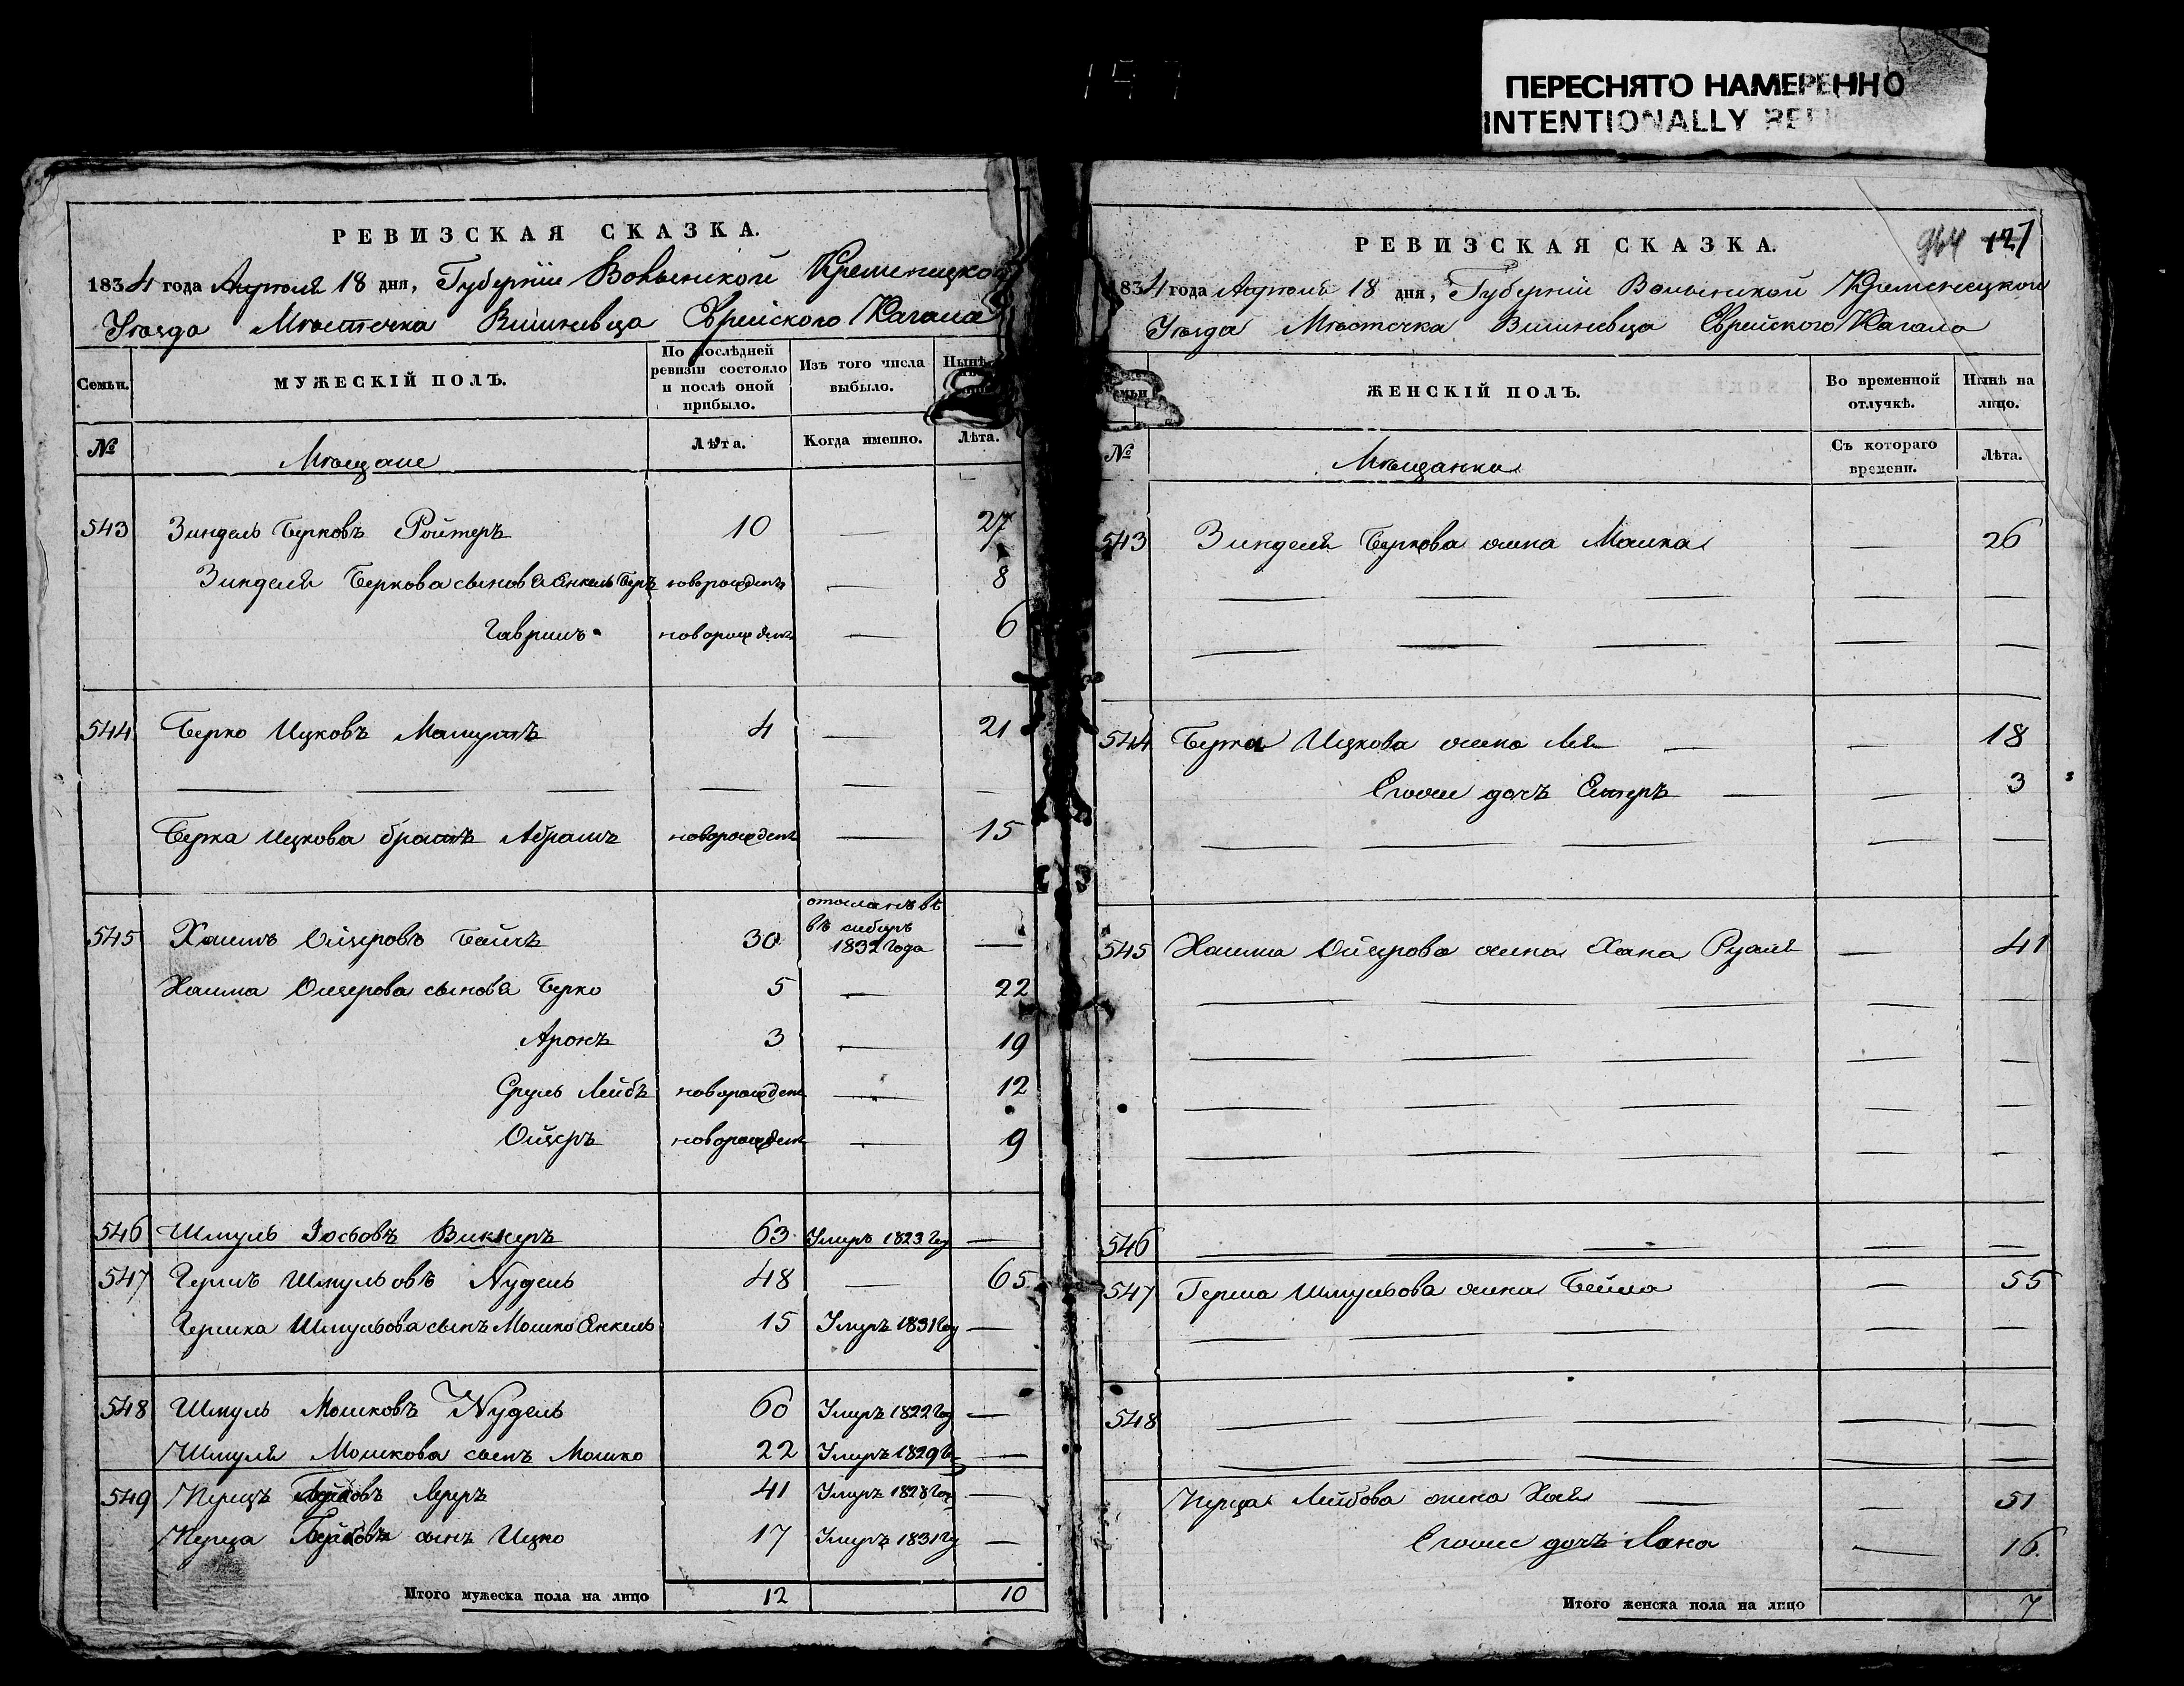 ПЕРЕСНЯТО НАМЕРЕННО
INTENTIONALLY
РЕВИЗСКАЯ СКАЗКА.
1834 года Апреля 18 дня, Губернiи Волынской Кременецкого
Уѣзда Мѣстечка Вишневца Еврейского Кагала
Семьи. МУЖЕСКIЙ ПОЛЪ. По послѣдней ревизiи состояло и послѣ оной прибыло. Изъ того числа выбыло. Нынѣ
№ Лѣта. Когда именно. Лѣта.
Мѣщане
543 Зиндель Берковъ Ройтеръ 10 — 27
Зинделя Беркова сыновья Янкель Беръ новорожденъ — 8
Гавриль новорожденъ — 6
544 Берко Ицковъ 4 — 21
— — — — — —
Берка Ицкова братъ Абрамъ новорожденъ — 15
545 Хаимъ Ойзеровъ 30 отосланъ въ
въ сибирь
1832 года —
Хаима Ойзерова сыновья Берко 5 — 22
Аронъ 3 — 19
Сруль Лейбъ новорожденъ — 12
Ойзеръ новорожденъ — 9
546 Шмуль Іосьовъ 63 Умеръ 1823 год —
547 Гершъ Шмульовъ Нудель 48 — 65
Гершка Шмульова сынъ Мошко Янкель 15 Умеръ 1831 год —
548 Шмуль Мошковъ Нудель 60 Умеръ 1822 год —
Шмуля Мошкова сынъ Мошко 22 Умеръ 1829 го —
549 Перецъ Лейбовъ 41 Умеръ 1828 год —
Переца Лейбова сынъ Ицко 17 Умеръ 1831 го —
Итого мужеска пола на лицо 12 10
РЕВИЗСКАЯ СКАЗКА.
964 127
1834 года Апреля 18 дня, Губернiи Волынской Кременецкой
Уѣзда Мѣстечка Вишневца Еврейского Кагала
Семьи ЖЕНСКIЙ ПОЛЪ. Во временной отлучкѣ. Нынѣ на лицо.
№ Съ котораго времени. Лѣта.
Мѣщанки
543 Зинделя Беркова жена Малка — 26
— — — — —
— — — — —
544 Берка Ицкова жена Лея — — 18
Егоже дочь Естеръ — — 3
— — — — —
545 Хаима Ойзерова жена Хана Рухля — 41
— — — — —
— — — — —
— — — — —
— — — — —
546 — — — — —
547 Герша Шмульова жена Бейла — 55
— — — — —
548 — — — — —
— — — — —
Переца Лейбова жена Хая — — 51
Егоже дочь — 16
Итого женска пола на лицо 7